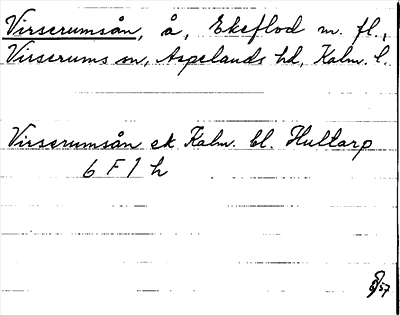 Virserumsån, å, Ekeflod m. fl.,
Virserums sn, Aspelands hd, Kalm. l.
Virserumsån ek Kalm. bl. Hultarp
6 F 1 h